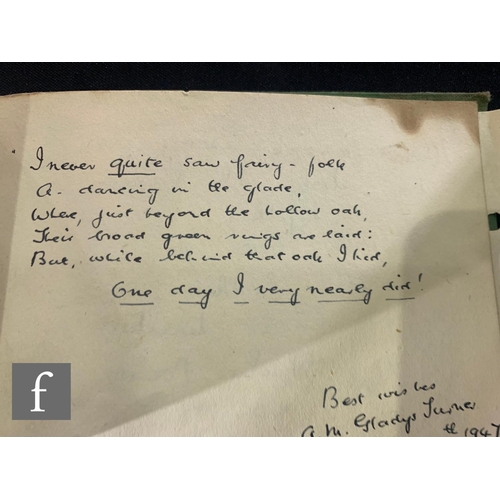 I never quite saw fairy-folk
A-dancing in the glade,
Where, just beyond the hollow oak,
Their broad green rings are laid:
But, while behind that oak I hid,
One day I very nearly did!
f
Best wishes
A. M. Gladys Turner
th 1947